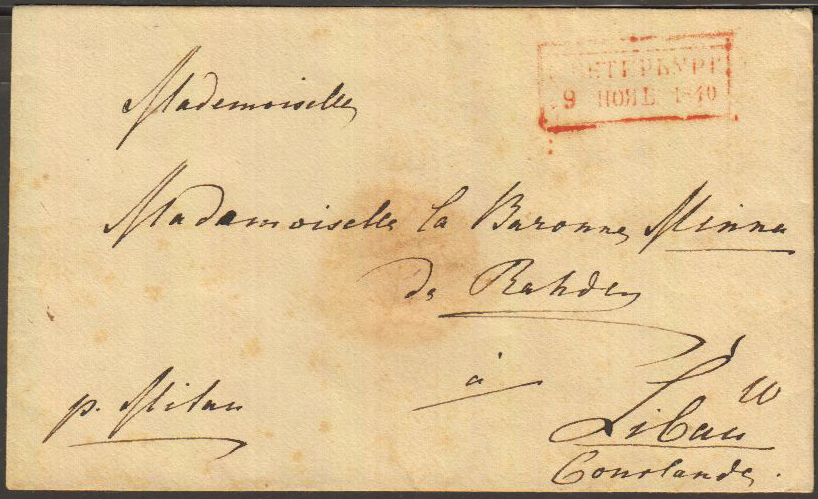 ПЕТЕРБУРГ
9 НОЯБ. 1840
Mademoiselle
Mademoiselle la Baronne Minna
de Rahden
à
p. Mitau
Libau
Courlande.